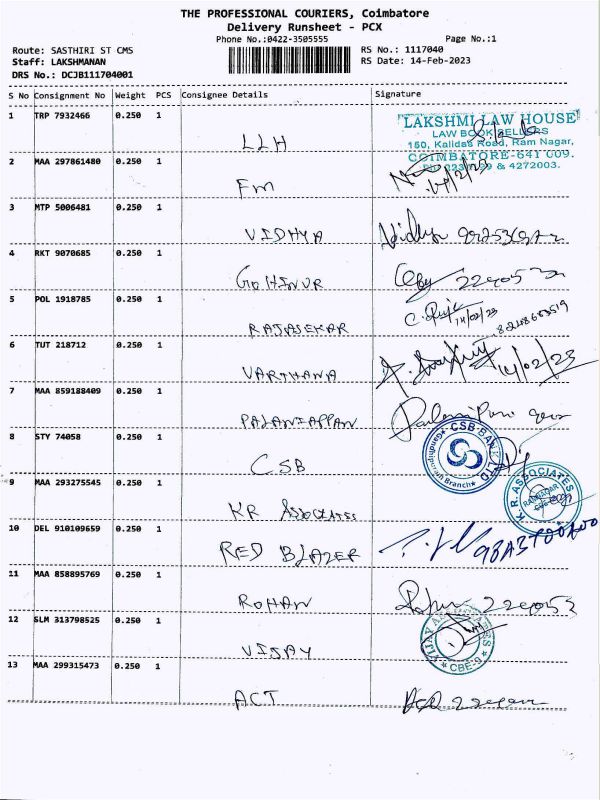 THE PROFESSIONAL COURIERS, Coimbatore
Delivery Runsheet - PCX
Phone No.:0422-3505555 Page No.:1
Route: SASTHIRI ST CMS RS No.: 1117040
Staff: LAKSHMANAN RS Date: 14-Feb-2023
DRS No.: DCJB111704001
S No Consignment No Weight PCS Consignee Details Signature
1 TRP 7932466 0.250 1
LLH
"LAKSHMI LAW HOUSE"
LAW BOOK SELLERS
150, Kalidas Road, Ram Nagar,
COIMBATORE-641 009.
& 4272003.
2 MAA 297861480 0.250 1
FM
3 MTP 5006481 0.250 1
VIDHYA
4 RKT 9070685 0.250 1
GOHINUR
5 POL 1918785 0.250 1
RAJASEKAR 14/02/23
6 TUT 218712 0.250 1
VARTHANA 14/02/23
7 MAA 859188409 0.250 1
PALANIAPPAN
8 STY 74058 0.250 1
CSB
CSB BANK LTD
Gandhipuram Branch
9 MAA 293275545 0.250 1
KR ASSOCIATES
K. R. ASSOCIATES
RAMNAGAR
10 DEL 910109659 0.250 1
RED BLAZER
11 MAA 858895769 0.250 1
ROHAN
12 SLM 313798525 0.250 1
VIJAY
CBE-9
13 MAA 299315473 0.250 1
ACT